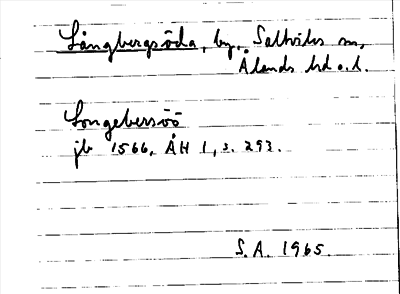 Långbergsöda, by, Saltviks sn,
Ålands hd o. l.
Longebersöö
jb 1566, ÅH 1, s. 293.
S. A. 1965.